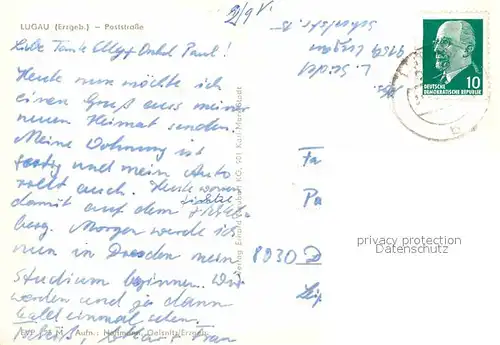 LUGAU (Erzgeb.) – Poststraße
2/9 V.
Liebe Tante Elly + Onkel Paul!
Heute nun möchte ich
einen Gruß aus meiner
neuen Heimat senden.
Meine Wohnung ist
fertig und mein Auto
rollt auch. Heute waren
damit auf dem Fichtel
berg. Morgen werde ich
nun in Dresden mein
Studium beginnen. Wir
werden und ja dann
bald einmal sehen.
EVP
M
Aufn.: Hoffmann, Oelsnitz/Erzgeb.
Verlag Erhard Neubert KG, 901 Karl-Marx-Stadt
Abs.
L. Seidel
9159 Lugau
DEUTSCHE
DEMOKRATISCHE REPUBLIK
10
b
Fa
Pa
8030 D
privacy protection
Datenschutz